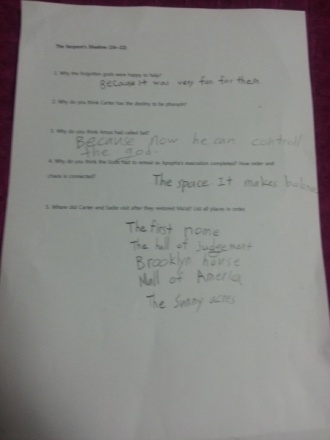 The Serpent's Shadow (19-22)
1. Why the forgotten gods were happy to help?
Because it was very fun for them
2. Why do you think Carter has the destiny to be pharaoh?
3. Why do you think Amos had called Set?
Because now he can controll
the god.
4. Why do you think the Gods had to retreat as Apophis's execration completed? How order and
chaos is connected?
The space. It makes balance
5. Where did Carter and Sadie visit after they restored Maat? List all places in order.
The first nome
The hall of Judgement
Brooklyn house
Mall of America
The Sunny acres